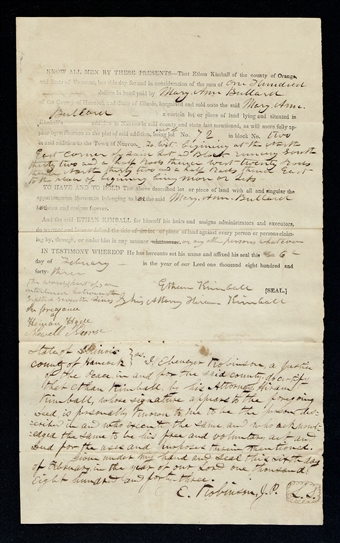 KNOW ALL MEN BY THESE PRESENTS—That Ethan Kimball of the county of Orange,
and State of Vermont, for and in consideration of the sum of One Hundred
dollars to in hand paid by Mary Ann Bullard
of the County of Hancock and State of Illinois, bargained and sold unto the said Mary Ann
Bullard a certain lot or piece of land lying and situated in
county and state last mentioned, as will more fully ap-
pear by a reference to the plat of said addition, lot No. 72 in block No. two
addition to the Town of Nauvoo, said lot Begining at the North
East corner of said lot & Block running South
forty two and a half rods thence West twenty rods
thence North forty two and a half rods thence East
to the place of begining being more or less
TO HAVE AND TO HOLD the above described lot or piece of land with all and singular the
appurtenances thereunto belonging to the said Mary Ann Bullard
heirs and assigns forever.
And the said ETHAN KIMBALL for himself his heirs and assigns administrators and executors,
do warrant and forever defend the title of the or piece of land against every person or persons claim-
ing by, through, or under him in any manner whatsoever, or any other persons whatsoever
IN TESTIMONY WHEREOF He has hereunto set his name and affixed his seal this 6th
day of February in the year of our Lord one thousand eight hundred and
forty three
Ethan Kimball [SEAL.]
by his Attorney Hiram Kimball
In presence
of
State of Illinois
County of Hancock } ss. I Ebenezer Robinson a Justice
of the Peace in and for the said county do certify
that Ethan Kimball by his Attorney Hiram
Kimball, whose signature appears to the foregoing
deed is personally known to me to be the person des-
cribed in and who executed the same and who acknowl-
edged the same to be his free and voluntary act and
deed for the uses and purposes therein mentioned.
Given under my hand and seal this sixth day
of February in the year of our Lord one thousand
eight hundred and forty-three.
E. Robinson, J.P. L.S.